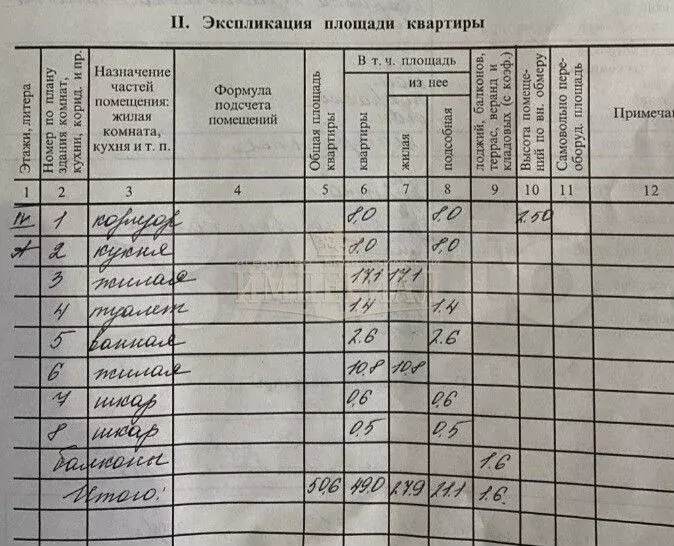 II. Экспликация площади квартиры
Этажи, литера
Номер по плану здания комнат, кухни, корид. и пр.
Назначение частей помещения: жилая комната, кухня и т. п.
Формула подсчета помещений
Общая площадь квартиры
В т. ч. площадь
квартиры
из нее
жилая
подсобная
лоджий, балконов, террас, веранд и кладовых (с коэф.)
Высота помещений по вн. обмеру
Самовольно переоборуд. площадь
Примечан
1 2 3 4 5 6 7 8 9 10 11 12
IV 1 коридор 8,0 8,0 2.50
А 2 кухня 8,0 8,0
3 жилая 17,1 17,1
4 туалет 1.4 1.4
5 ванная 2.6 2.6
6 жилая 10,8 10,8
7 шкаф 0,6 0,6
8 шкаф 0,5 0,5
балконы 1.6
Итого: 50,6 49,0 27,9 21,1 1.6
ИМПЕРИАЛ